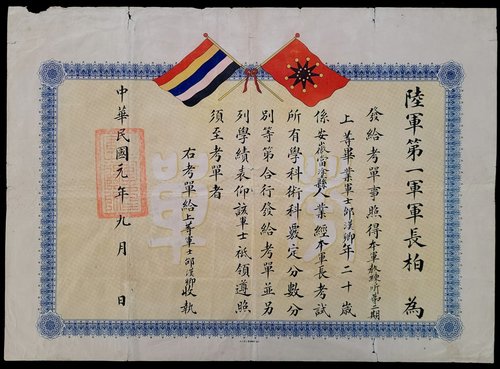 陸軍第一軍軍長柏　為
發給考單事照得本軍教練所第二期
上等畢業軍士邵漢卿年二十歲
係安徽當塗縣人業經本軍長考試
所有學科術科嚴定分數分
別等第合行發給考單並另
列學績表仰該軍士祗領遵照
須至考單者
右考單給上等軍士邵漢卿收執
中華民國元年九月　日